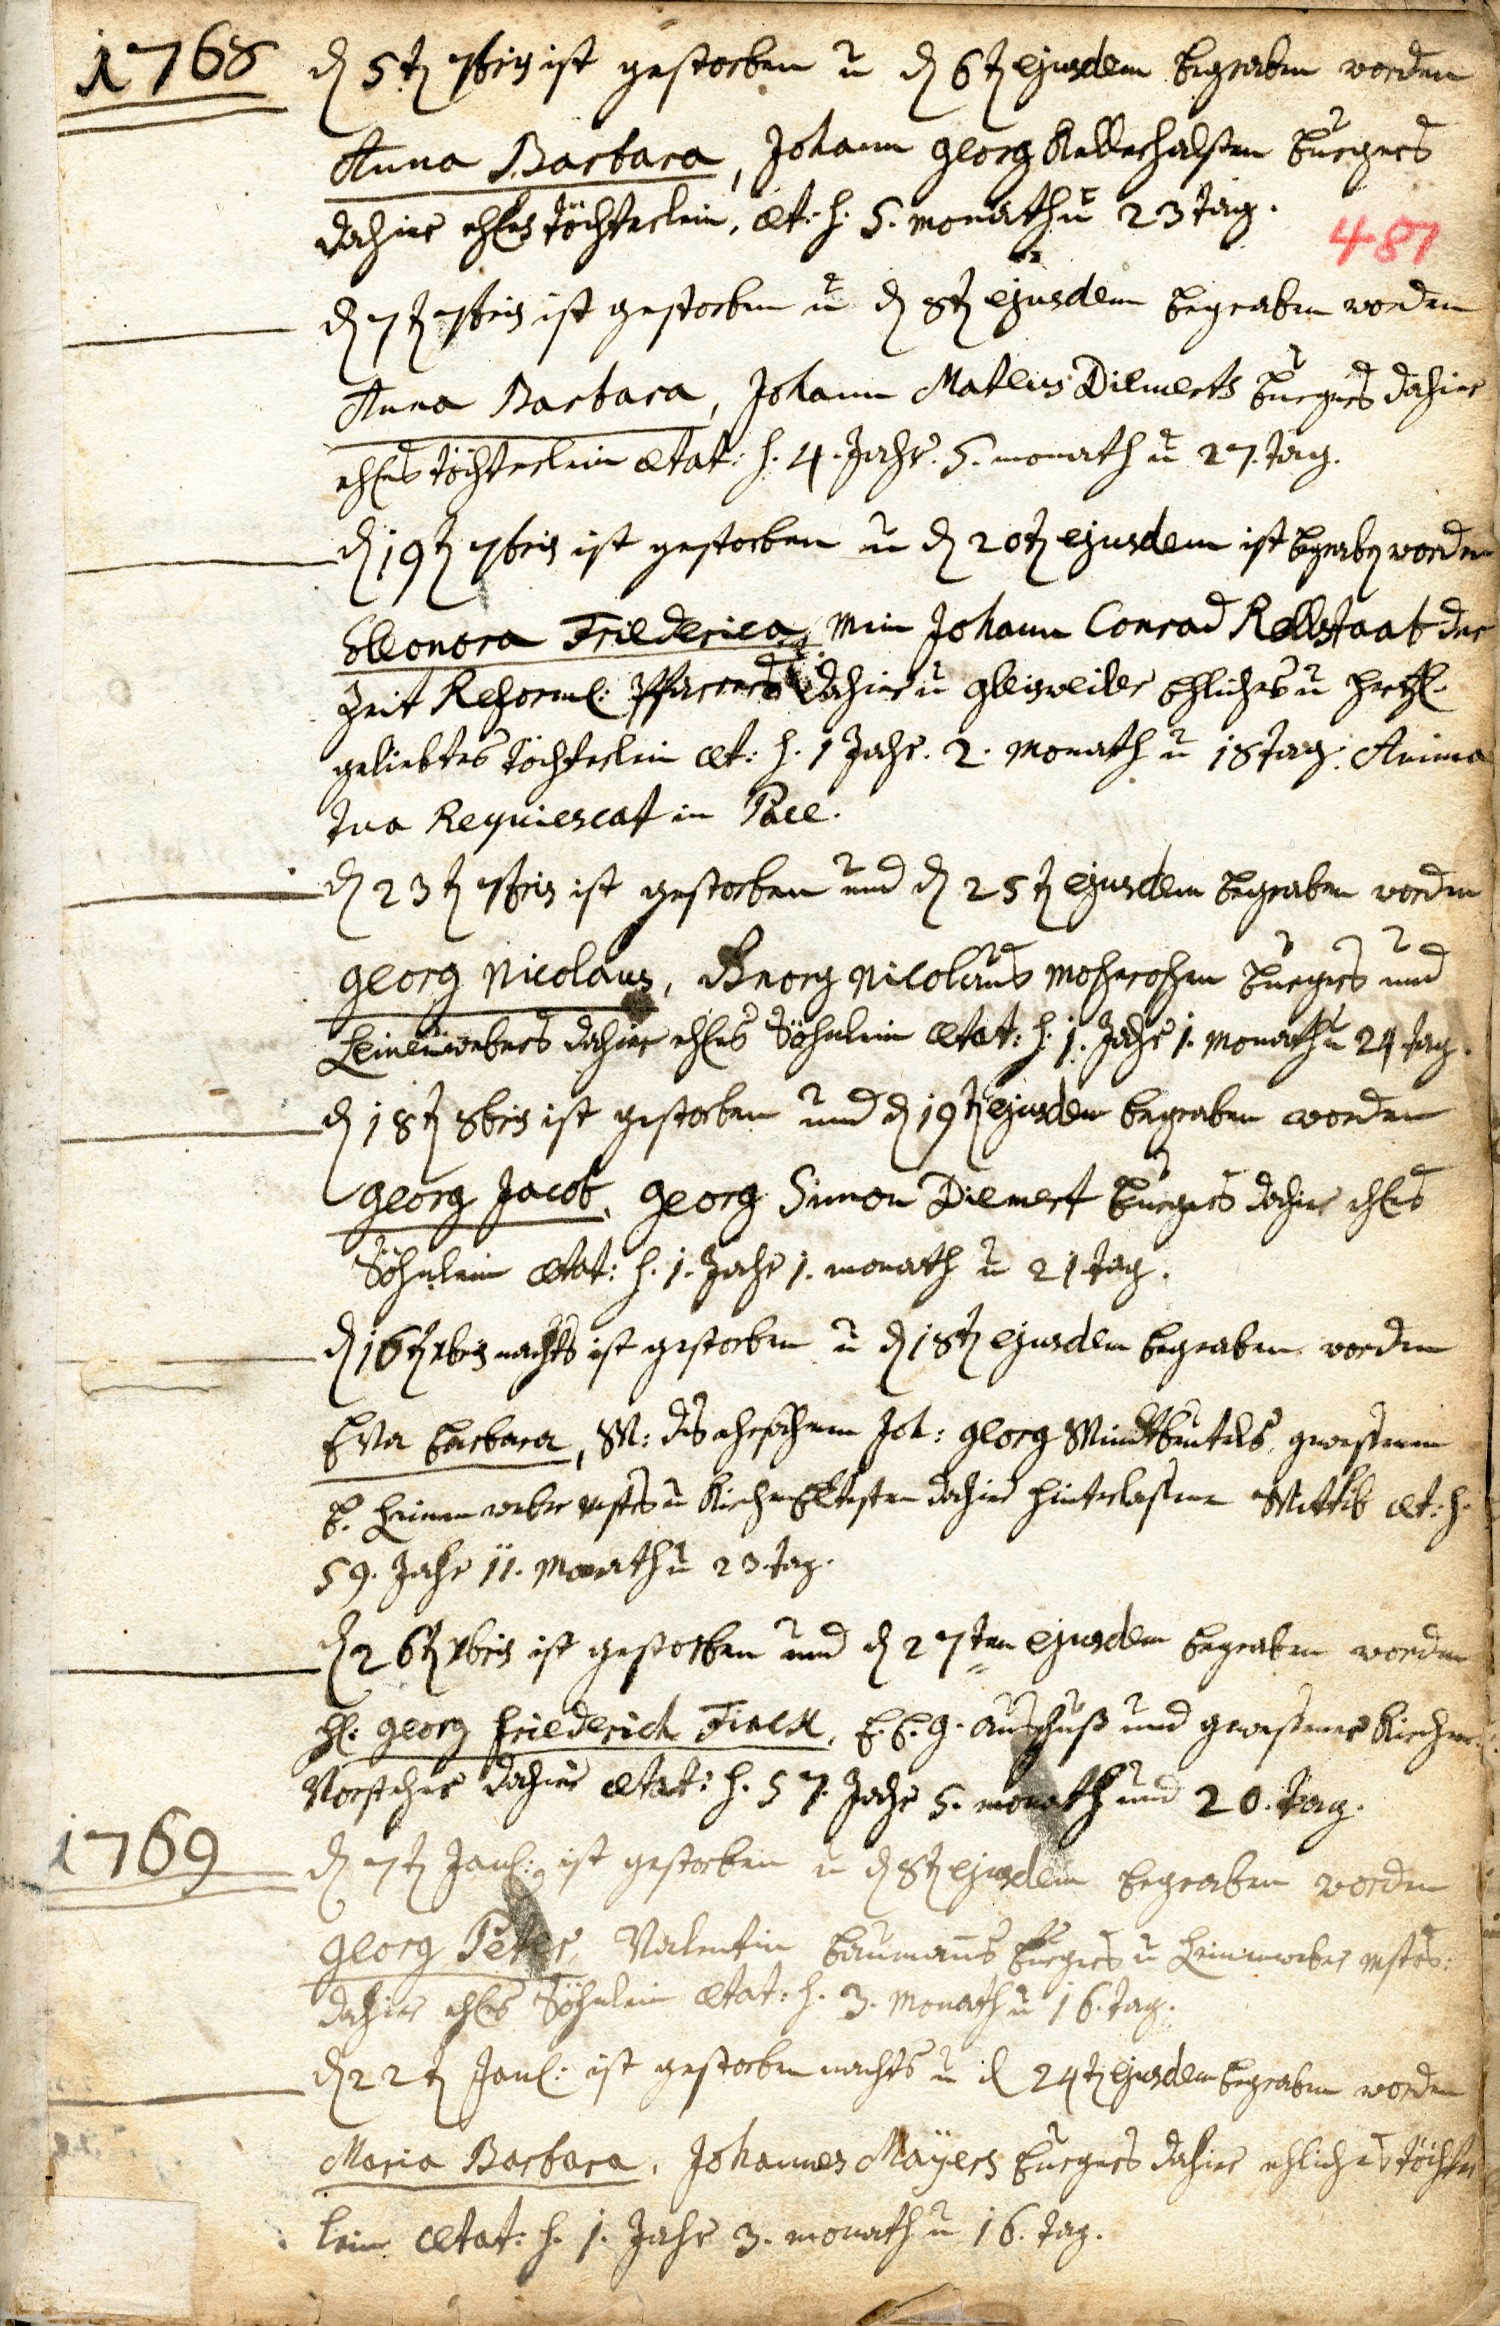 1768
d 5t 7bris ist gestorben u d 6t ejusdem begraben worden
Anna Barbara, Johann Georg Kellerhalsen burgers
dahier ehles töchterlein, æt: h. 5. monath u 23 tag.
487
d 7t 7bris ist gestorben u d 8t ejusdem begraben worden
Anna Barbara, Johann Mateus Diemerts burgers dahier
ehles töchterlein ætat: h. 4. Jahr. 5. monath u 27. tag.
d 19t 7bris ist gestorben u d 20t ejusdem ist begraben worden
Eleonora Friderica, mein Johann Conrad Rellstaab der
Zeit Reform: Pfarrers dahier u gleisweiler Ehliches u
geliebtes töchterlein æt: h. 1 Jahr. 2. Monath u 18 tag. Anima
tua Requiescat in Pace.
d 23t 7bris ist gestorben und d 25t ejusdem begraben worden
Georg Nicolaus, Georg Nicolaus burgers und
Leinenwebers dahier ehles Söhnlein ætat: h. 1. Jahr 1. Monath u 24 tag.
d 18t 8bris ist gestorben und d 19t ejusdem begraben worden
Georg Jacob, Georg Simon Diemert burgers dahier ehles
Söhnlein ætat: h. 1. Jahr 1. monath u 21 tag.
d 16t xbris nachts ist gestorben u d 18t ejusdem begraben worden
Eva barbara, W: des Joh: Georg gewesenen
b. Leinenweber mstrs u KirchenEltesten dahier hinterlassene Wittib æt: h.
59. Jahr 11. Monath u 23. tag.
d 26t xbris ist gestorben und d 27ten ejusdem begraben worden
H: Georg Friederich Finck, E. E. G. Ausschuß und gewesener Kirchen
Vorsteher dahier ætat: h. 57. Jahr 5. monath und 20. tag.
1769
d 7t Jan: ist gestorben u d 8t ejusdem begraben worden
Georg Peter, Valentin baumanns burgers u Leinenweber mstrs:
dahier ehles Söhnlein ætat: h. 3. Monath u 16. tag.
d 22t Jan: ist gestorben nachts u d 24t ejusdem begraben worden
Maria Barbara, Johannes Mayers burgers dahier ehliches töchter
lein ætat: h. 1. Jahr 3. monath u 16. tag.